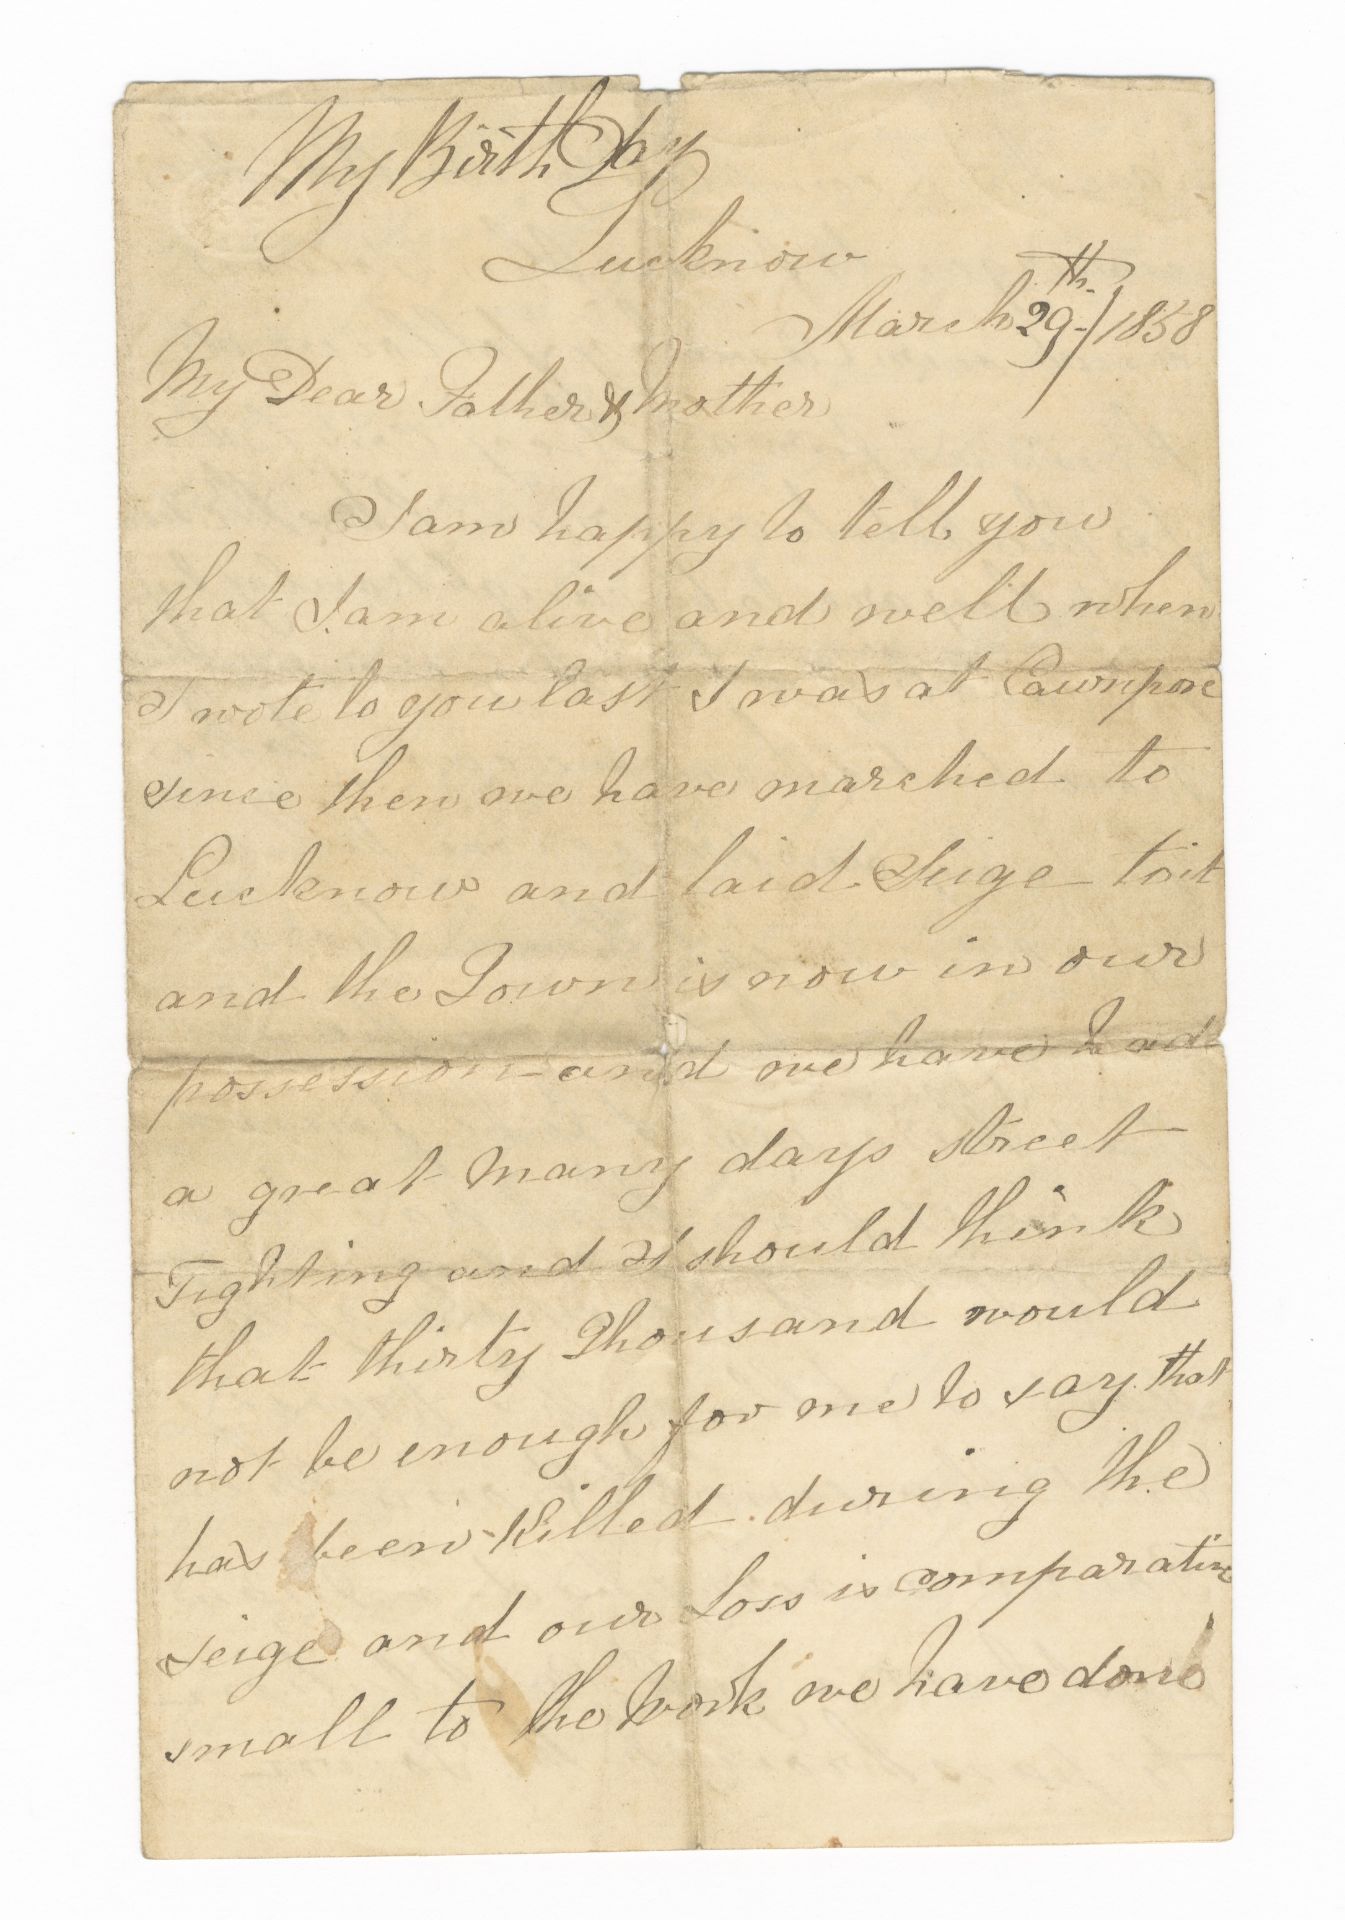 My Birth Day
Lucknow
March 29th/1858
My Dear Father & Mother
I am happy to tell you
that I am alive and well when
I wote to you last I was at Cawnpore
since then we have marched to
Lucknow and laid Seige to it
and the Town is now in our
possession and we have had
a great many days street
Fighting and I should think
that thirty Thousand would
not be enough for me to say that
has been Killed during the
seige and our Loss is comparative
small to the work we have done